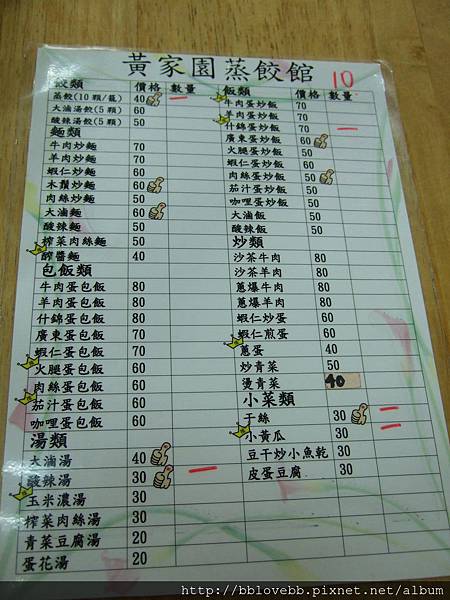 黃家園蒸餃館
10
餃類 價格 數量
蒸餃(10顆/籠) 40
大滷湯餃(5顆) 60
酸辣湯餃(5顆) 50
麵類
牛肉炒麵 70
羊肉炒麵 70
蝦仁炒麵 60
木鬚炒麵 60
肉絲炒麵 50
大滷麵 60
酸辣麵 50
榨菜肉絲麵 50
醡醬麵 40
包飯類
牛肉蛋包飯 80
羊肉蛋包飯 80
什錦蛋包飯 80
廣東蛋包飯 70
蝦仁蛋包飯 70
火腿蛋包飯 60
肉絲蛋包飯 60
茄汁蛋包飯 60
咖哩蛋包飯 60
湯類
大滷湯 40
酸辣湯 30
玉米濃湯 30
榨菜肉絲湯 30
青菜豆腐湯 20
蛋花湯 20
飯類 價格 數量
牛肉蛋炒飯 70
羊肉蛋炒飯 70
什錦蛋炒飯 70
廣東蛋炒飯 60
火腿蛋炒飯 50
蝦仁蛋炒飯 60
肉絲蛋炒飯 50
茄汁蛋炒飯 50
咖哩蛋炒飯 50
大滷飯 60
酸辣飯 50
炒類
沙茶牛肉 80
沙茶羊肉 80
蔥爆牛肉 80
蔥爆羊肉 80
蝦仁炒蛋 60
蝦仁煎蛋 60
蔥蛋 40
炒青菜 50
燙青菜 40
小菜類
干絲 30
小黃瓜 30
豆干炒小魚乾 30
皮蛋豆腐 30
http://bblovebb.pixnet.net/album